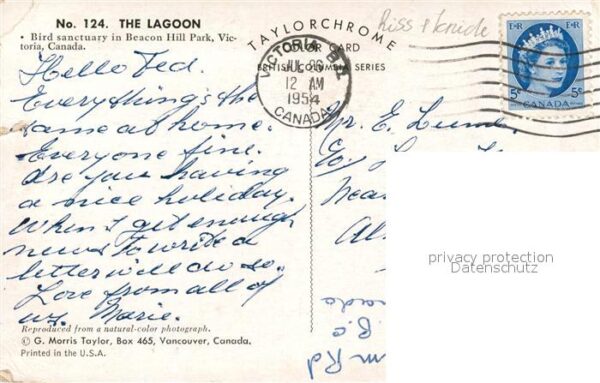 No. 124. THE LAGOON
• Bird sanctuary in Beacon Hill Park, Vic-
toria, Canada.
Hello Ted.
Everything's the
same at home.
Everyone fine.
Are you having
a nice holiday.
When I get enough
news to write a
letter will do so.
Love from all of
us. Marie.
Reproduced from a natural-color photograph.
© G. Morris Taylor, Box 465, Vancouver, Canada.
Printed in the U.S.A.
TAYLORCHROME
COLOR CARD
BRITISH COLUMBIA SERIES
VICTORIA B.C.
JUL 26
12 AM
1954
CANADA
Riss + knicke
E R E R
5¢ 5¢
CANADA
Mr. E.
c/o
Near
privacy protection
Datenschutz
B.C.
Rd